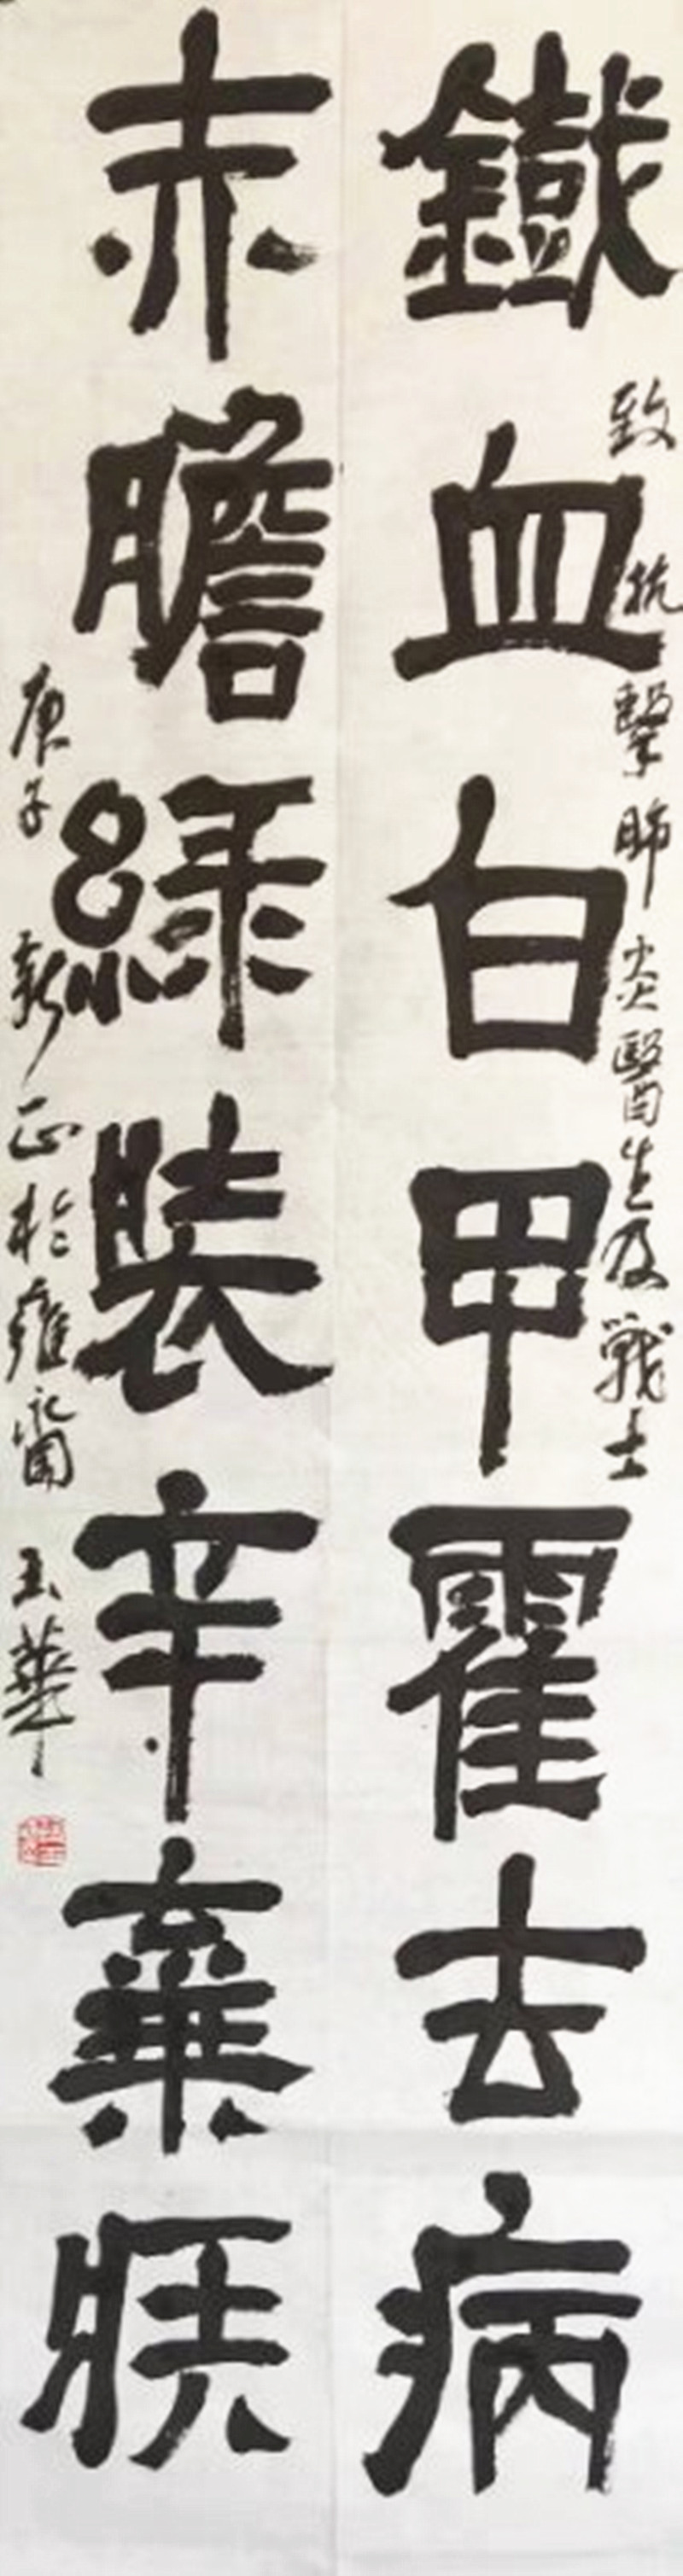 致抗擊肺炎醫生及戰士
鐵血白甲霍去病
赤膽綠裝辛棄疾
庚子新正於雍 玉華